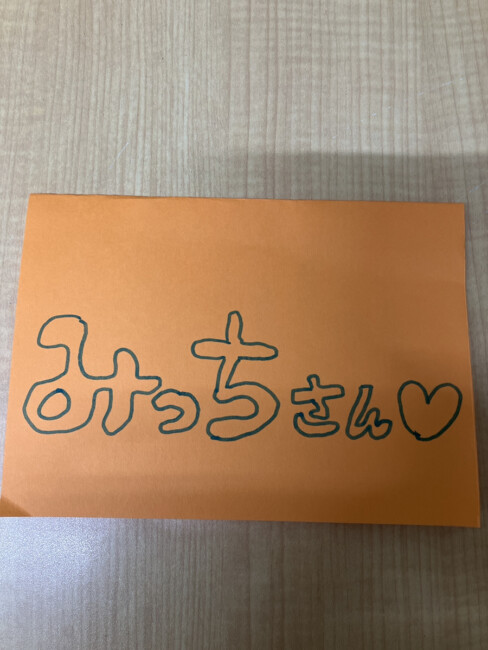 みっちさん♡